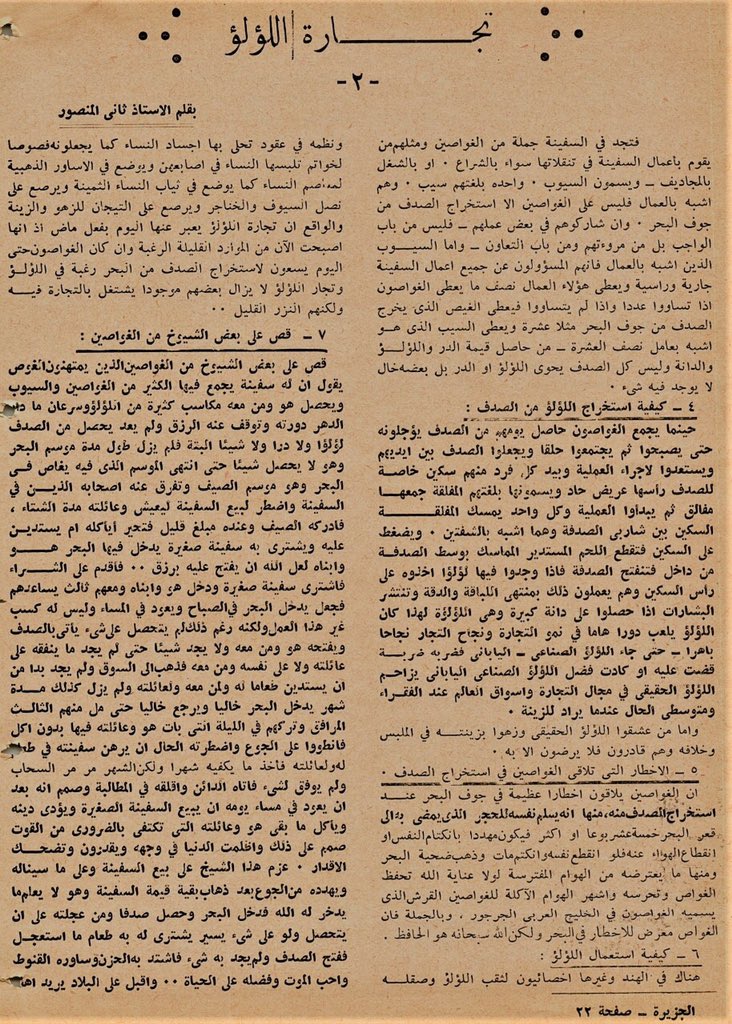 تجـــارة اللؤلؤ
- ٢ -
بقلم الاستاذ ثانى المنصور
فتجد في السفينة جملة من الغواصين ومثلهم من
يقوم بأعمال السفينة في تنقلاتها سواء بالشراع ٠ او بالشغل
بالمجاديف ــ ويسمون السيوب ٠ واحده بلغتهم سيب ٠ وهم
اشبه بالعمال فليس على الغواصين الا استخراج الصدف من
جوف البحر ٠ وان شاركوهم في بعض عملهم ــ فليس من باب
الواجب بل من مروءتهم ومن باب التعاون ــ واما السيــوب
الذين اشبه بالعمال فانهم المسؤولون عن جميع اعمال السفينة
جارية وراسية ويعطى هؤلاء العمال نصف ما يعطى الغواصون
اذا تساووا عددا واذا لم يتساووا فيعطى الغيص الذى يخرج
الصدف من جوف البحر مثلا عشرة ويعطى السيب الذى هــو
اشبه بعامل نصف العشرة ــ من حاصل قيمة الدر واللؤلــؤ
والدانة وليس كل الصدف يحوى اللؤلؤ او الدر بل بعضه خال
لا يوجد فيه شىء ٠
٤ ــ كيفية استخراج اللؤلؤ من الصدف :
حينما يجمع الغواصون حاصل يومهم من الصدف يؤجلونه
حتى يصبحوا ثم يجتمعوا حلقا ويجعلوا الصدف بين ايديهم
ويستعدوا لاجراء العملية وبيد كل فرد منهم سكين خاصة
للصدف رأسها عريض حاد ويسمونها بلغتهم المفلقة جمعهــا
مفالق ثم يبدأوا العملية وكل واحد يمسك المفلقــة
السكين بين شاربى الصدفة وهما اشبه بالشفتين ٠ ويضغط
على السكين فتقطع اللحم المستدير المماسك بوسط الصدفــة
من داخل فتنفتح الصدفة فاذا وجدوا فيها لؤلؤا اخذوه على
رأس السكين وهم يعملون ذلك بمنتهى اللباقة والدقة وتنتشر
البشارات اذا حصلوا على دانة كبيرة وهى اللؤلؤة لهذا كان
اللؤلؤ يلعب دورا هاما في نمو التجارة ونجاح التجار نجاحا
باهرا ــ حتى جاء اللؤلؤ الصناعى ــ اليابانى فضربه ضربــة
قضت عليه او كادت فضل اللؤلؤ الصناعى اليابانى يزاحــم
اللؤلؤ الحقيقى في مجال التجارة واسواق العالم عند الفقــراء
ومتوسطى الحال عندما يراد للزينة ٠
واما من عشقوا اللؤلؤ الحقيقى وزهوا بزينتــه في الملبس
وخلافه وهم قادرون فلا يرضون الا به ٠
٥ ــ الاخطار التى تلاقى الغواصين في استخراج الصدف ٠
ان الغواصين يلاقون اخطارا عظيمة في جوف البحر عنــد
استخراج الصدف منه، منها انه يسلم نفسه للحجر الذى يمضى به الى
قعر البحر خمسة عشر بوعا او اكثر فيكون مهددا بانكتام النفس او
انقطاع الهواء عنه فلو انقطع نفسه وانكتم مات وذهب ضحية البحر
ومنها ما يعترضه من الهوام المفترسة لولا عناية الله تحفظ
الغواص وتحرسه واشهر الهوام الآكلة للغواصين القرش الذى
يسميه الغواصون في الخليج العربى الجرجور ٠ وبالجملة فان
الغواص معرض للاخطار في البحر ولكن الله سبحانه هو الحافظ ٠
٦ ــ كيفية استعمال اللؤلؤ :
هناك في الهند وغيرها اخصائيون لثقب اللؤلؤ وصقلــه
ونظمه في عقود تحلى بها اجساد النساء كما يجعلونه فصوصا
لخواتم تلبسها النساء في اصابعهن ويوضع في الاساور الذهبية
لمعاصم النساء كما يوضع في ثياب النساء الثمينة ويرصع على
نصل السيوف والخناجر ويرصع على التيجان للزهو والزينة
والواقع ان تجارة اللؤلؤ يعبر عنها اليوم بفعل ماض اذ انها
اصبحت الآن من الموارد القليلة الرغبة وان كان الغواصون حتى
اليوم يسعون لاستخراج الصدف من البحر رغبة في اللؤلــؤ
وتجار اللؤلؤ لا يزال بعضهم موجودا يشتغل بالتجارة فيــه
ولكنهم النزر القليل ٠٠
٧ ــ قص على بعض الشيوخ من الغواصين :
قص على بعض الشيوخ من الغواصين الذين يمتهنون الغوص
يقول ان له سفينة يجمع فيها الكثير من الغواصين والسيوب
ويحصل هو ومن معه مكاسب كثيرة من اللؤلؤ وسرعان ما دار
الدهر دورته وتوقف عنه الرزق ولم يعد يحصل من الصدف
لؤلؤا ولا درا ولا شيئا البتة فلم يزل طول مدة موسم البحر
وهو لا يحصل شيئا حتى انتهى الموسم الذى فيه يغاص فى
البحر وهو موسم الصيف وتفرق عنه اصحابه الذيــن في
السفينة واضطر لبيع السفينة ليعيش وعائلته مدة الشتاء ،
فأدركه الصيف وعنده مبلغ قليل فتحير أيأكله ام يستدين
عليه ويشترى به سفينة صغيرة يدخل فيها البحر هــو
وابناه لعل الله ان يفتح عليه برزق ٠٠ فأقدم على الشــراء
فاشترى سفينة صغيرة ودخل هو وابناه ومعهم ثالث يساعدهم
فجعل يدخل البحر في الصباح ويعود في المساء وليس له كسب
غير هذا العمل ولكنه رغم ذلك لم يتحصل على شىء يأتى بالصدف
ويفتحه هو ومن معه ولا يجد شيئا حتى لم يجد ما ينفقه على
عائلته ولا على نفسه ومن معه فذهب الى السوق ولم يجد بدا من
ان يستدين طعاما له ولمن معه ولعائلته ولم يزل كذلك مــدة
شهر يدخل البحر خاليا ويرجع خاليا حتى مل منهم الثالث
المرافق وتركهم في الليلة التى بات هو وعائلته فيها بدون اكل
فانطووا على الجوع واضطرته الحال ان يرهن سفينته في طعام
له ولعائلته فأخذ ما يكفيه شهرا ولكن الشهر مر مر السحاب
ولم يوفق لشىء فاتاه الدائن واقلقه في المطالبة وصمم انه بعد
ان يعود في مساء يومه ان يبيع السفينة الصغيرة ويؤدى دينه
ويأكل ما بقى هو وعائلته التى تكتفى بالضرورى من القوت
صمم على ذلك واظلمت الدنيا في وجهه ويقدرون وتضحــك
الاقدار ٠ عزم هذا الشيخ على بيع السفينة وعلى ما سيناله
ويهدده من الجوع بعد ذهاب بقية قيمة السفينة وهو لا يعلم ما
يدخر له الله فدخل البحر وحصل صدفا ومن عجلته على ان
يتحصل ولو على شىء يسير يشترى له به طعام ما استعجل
ففتح الصدف ولم يجد به شىء فاشتد به الحزن وساوره القنوط
واحب الموت وفضله على الحياة ٠٠ واقبل على البلاد يريد اهله
الجزيرة ــ صفحة ٢٢